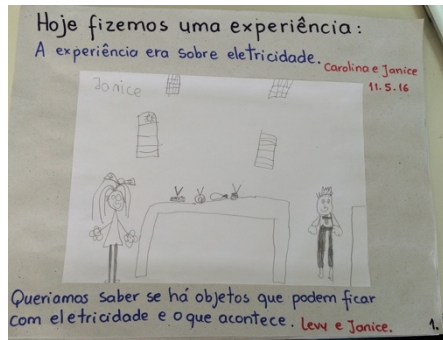 Hoje fizemos uma experiência:
A experiência era sobre eletricidade.
Carolina e Janice
11.5.16
Janice
Queriamos saber se há objetos que podem ficar
com eletricidade e o que acontece. Levy e Janice.
1.